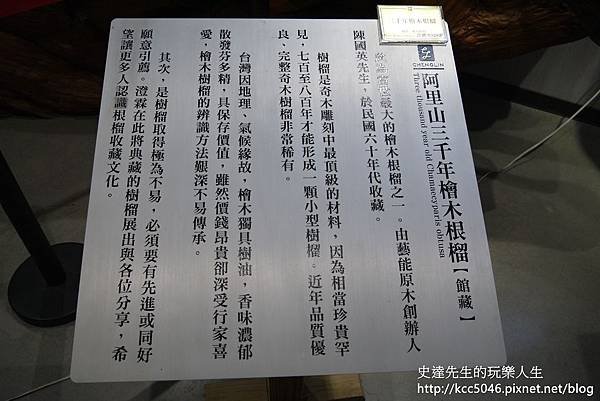 三千年檜木根榴
CHENGLIN
阿里山三千年檜木根榴【館藏】
Three thousand year old Chamaecyparis obtusa
最大的檜木根榴之一。由藝能原木創辦人
陳國英先生，於民國六十年代收藏。
樹榴是奇木雕刻中最頂級的材料，因為相當珍貴罕
見，七百至八百年才能形成一顆小型樹榴。近年品質優
良、完整奇木樹榴非常稀有。
台灣因地理、氣候緣故，檜木獨具樹油，香味濃郁
散發芬多精，具保存價值，雖然價錢昂貴卻深受行家喜
愛，檜木樹榴的辨識方法艱深不易傳承。
其次，是樹榴取得極為不易，必須要有先進或同好
願意引薦。澄霖在此將典藏的樹榴展出與各位分享，希
望讓更多人認識根榴收藏文化。
史達先生的玩樂人生
http://kcc5046.pixnet.net/blog